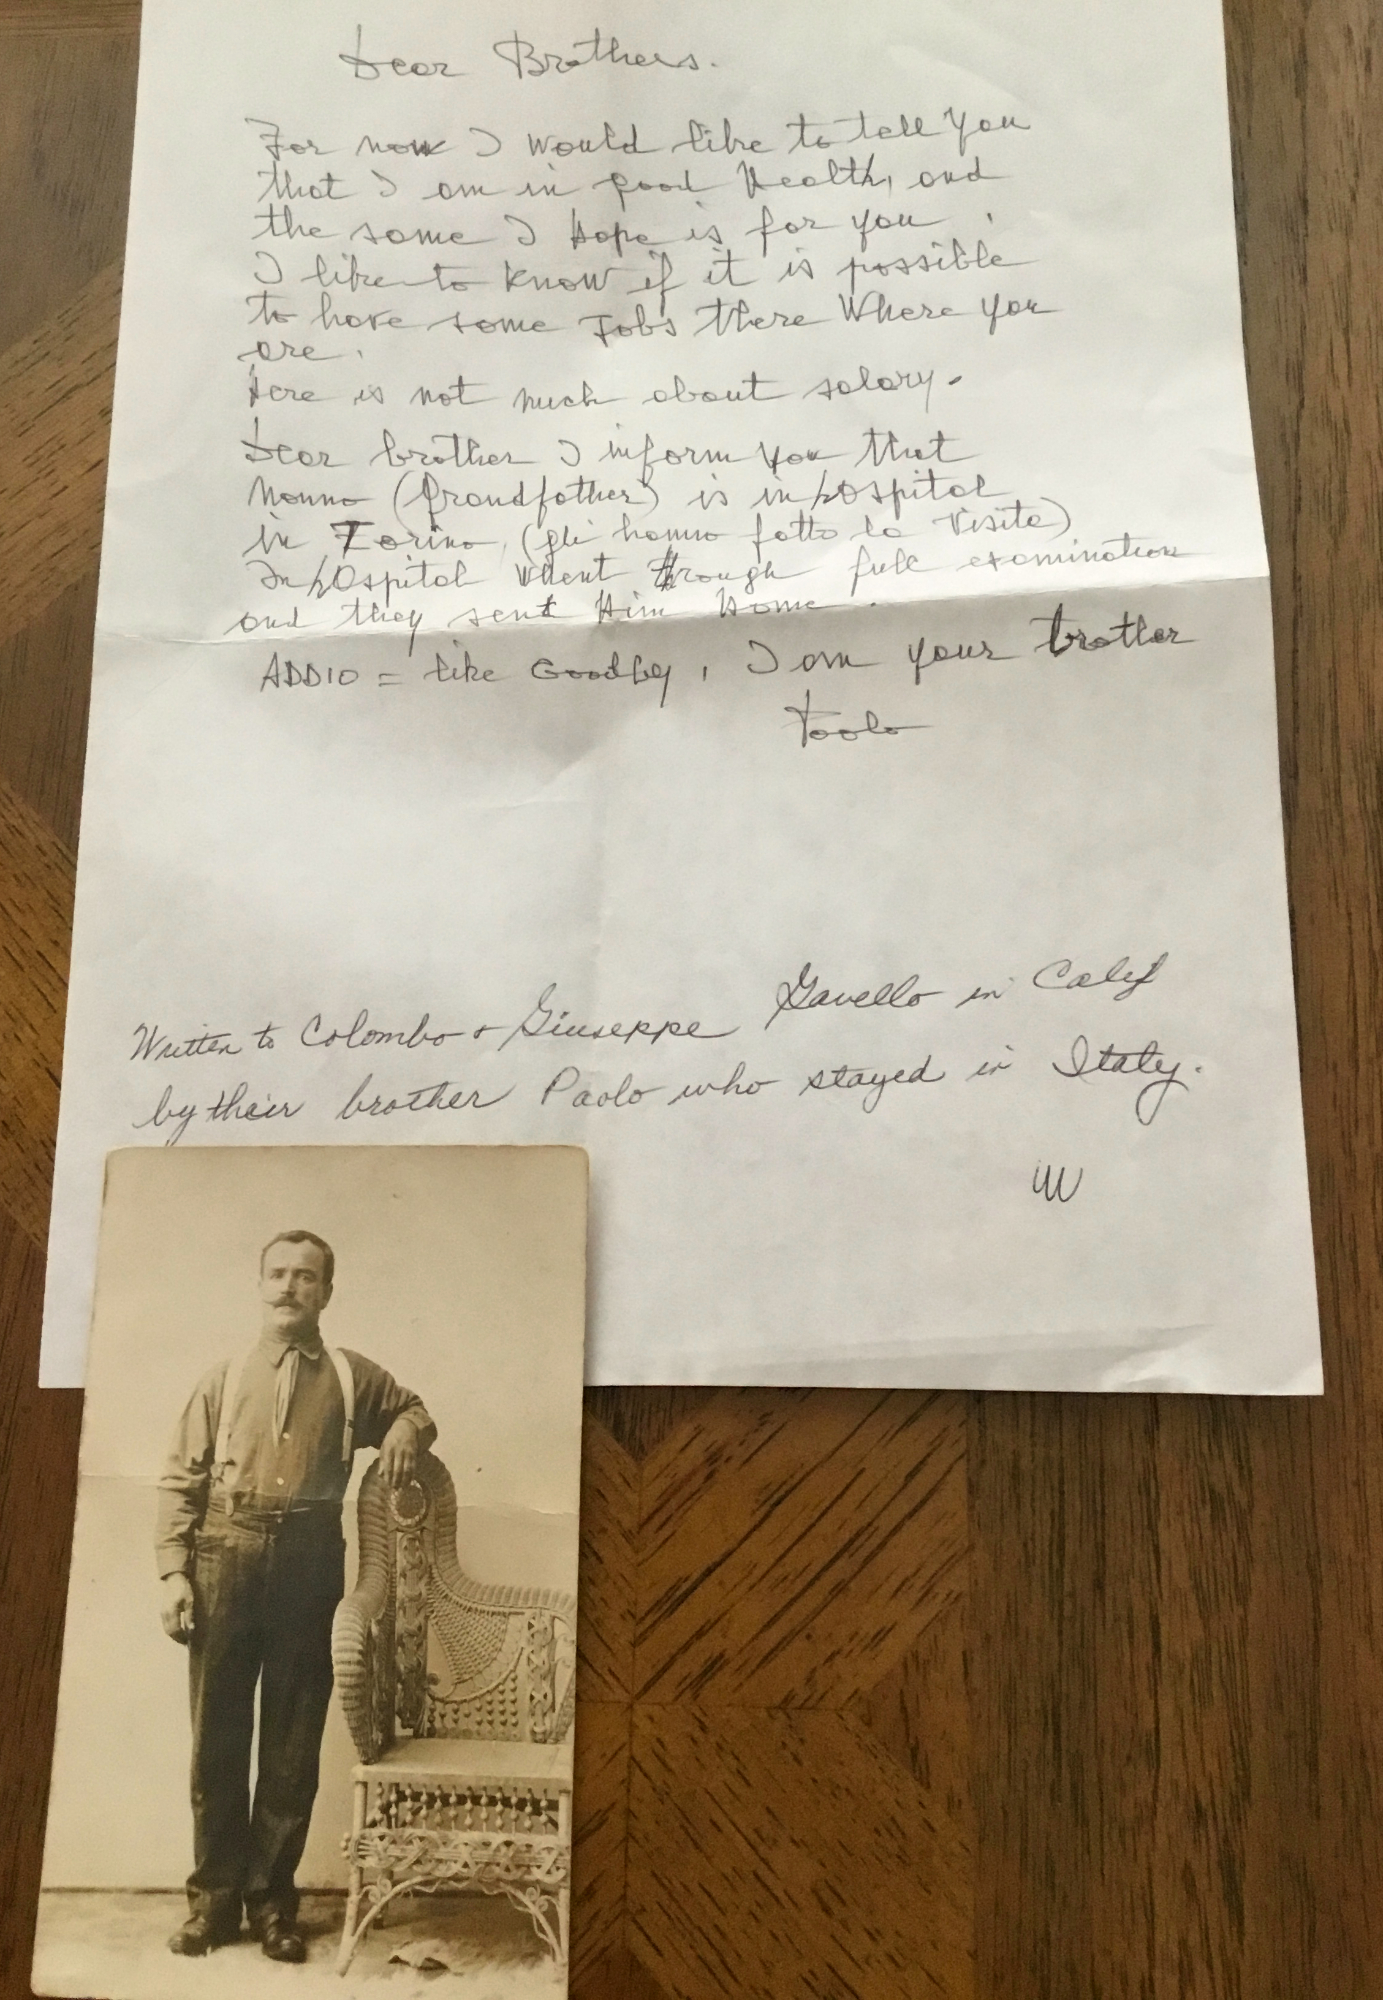 Dear Brothers.
For now I would like to tell you
that I am in good Health, and
the same I Hope is for you.
I like to know if it is possible
to have some Jobs there Where you
are.
Here is not much about salary.
Dear brother I inform you that
Nonno (Grandfather) is in hOspital
in Torino, (gli hanno fatto la Visite)
In hOspital Whent through full examination
and they sent Him Home.
ADDIO = like Goodby, I am your brother
Paolo
Written to Colombo & Giuseppe Gavello in Calif
by their brother Paolo who stayed in Italy.